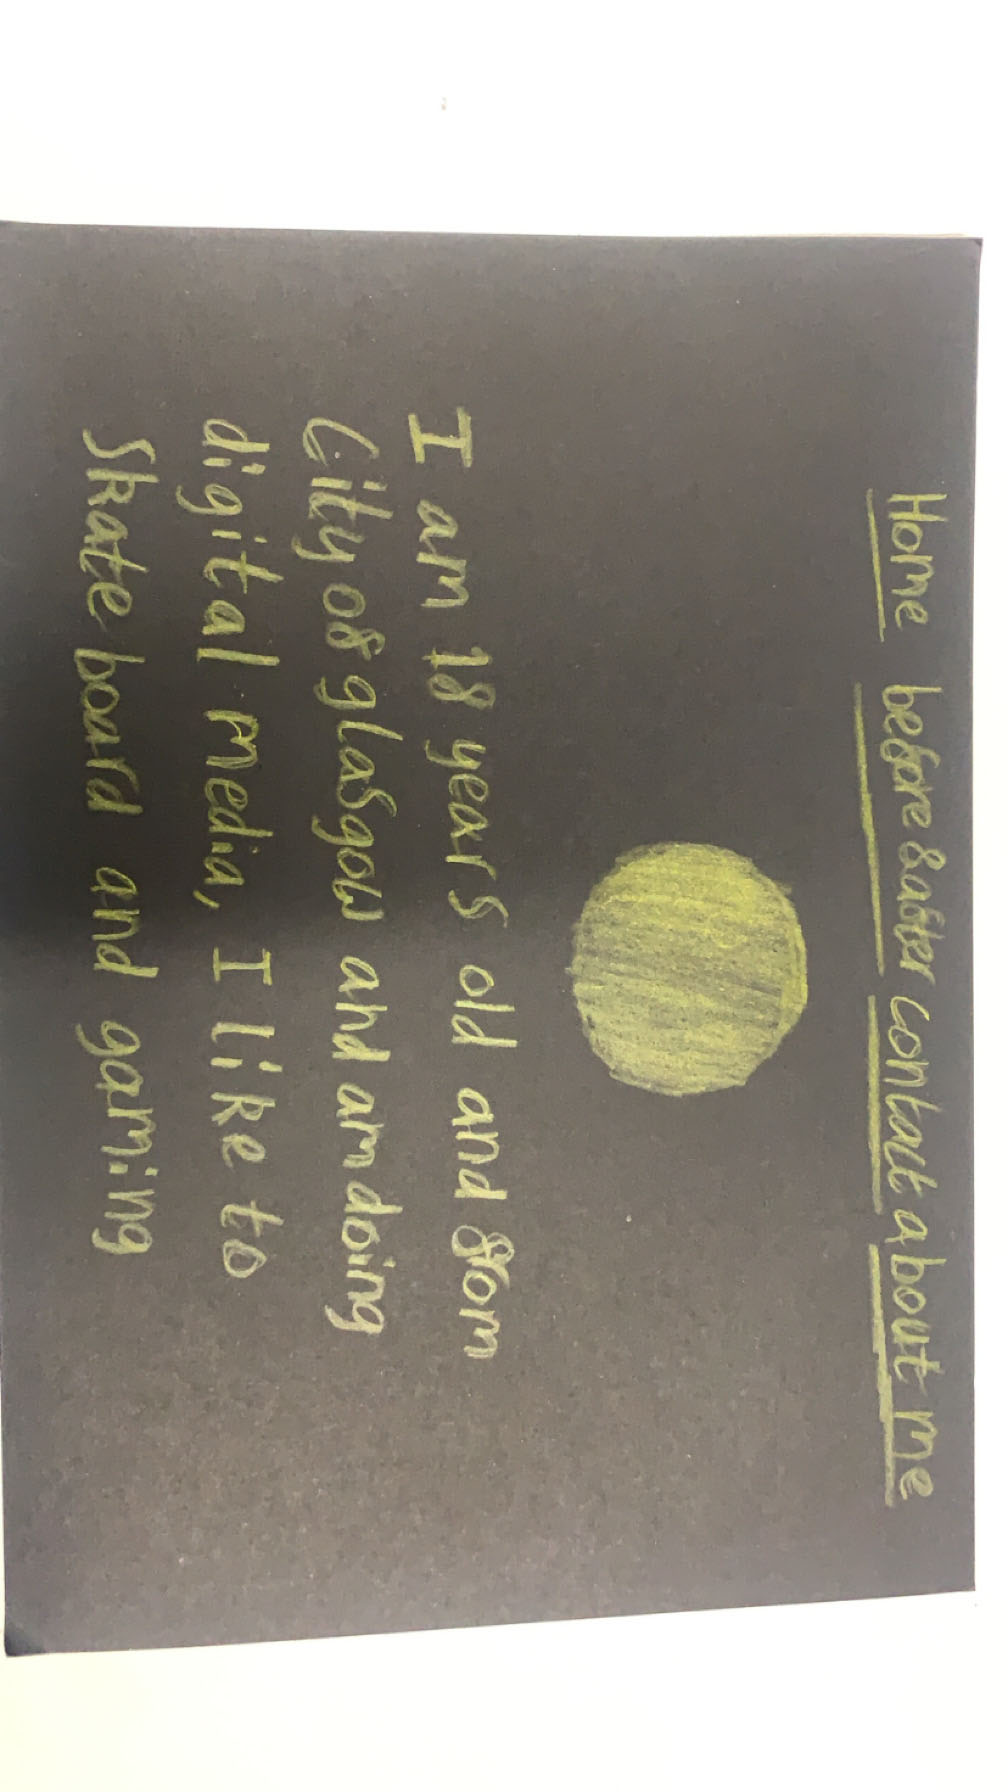 Home before & after contact about me
I am 18 years old and from
City of glasgow and am doing
digital media, I like to
Skateboard and gaming